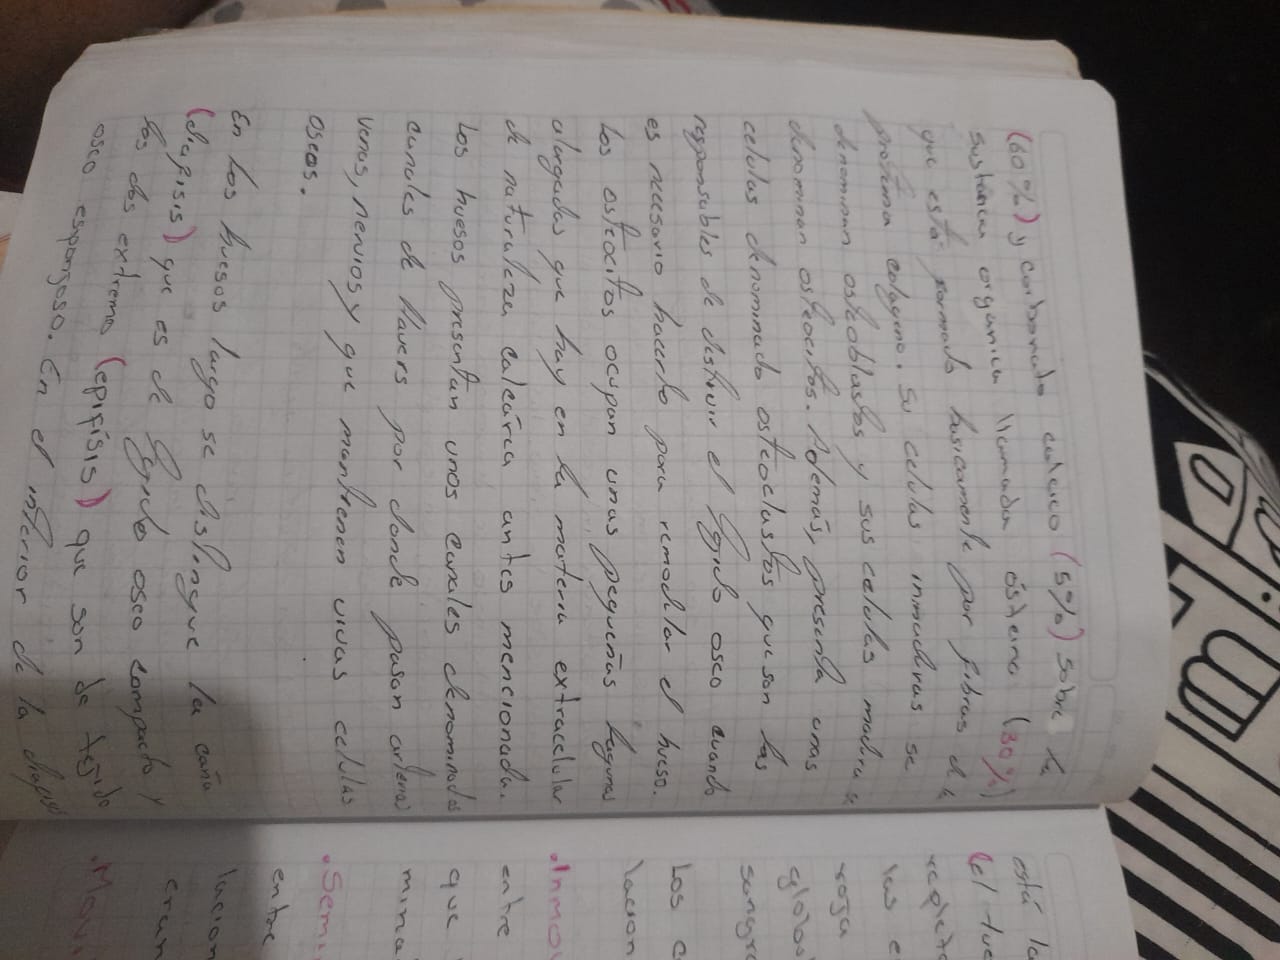 (60%) y carbonato calcico (5%) sobre la
sustancia organica llamada osteina (30%)
que está formada basicamente por fibras de la
proteina colageno. Su celulas inmaduras se
denominan osteoblastos y sus celulas madura se
denominan osteocitos. Además, presenta unas
celulas denominada osteoclastos que son las
responsables de destruir el tejido osco cuando
es necesario hacerlo para remodelar el hueso.
Los osteocitos ocupan unas pequeñas lagunas
alargadas que hay en la materia extracelular
de naturaleza calcárica antes mencionada.
Los huesos presentan unos canales denominados
canales de Havers por donde pasan arterias
venas, nervios y que mantienen vivas celulas
oseas.
En los huesos largo se distingue la caña
(diafisis) que es de tejido osco compacto y
los dos extremo (epifisis) que son de tejido
osco esponjoso. En el interior de la diafisis
está la
(el tue
repleta
las e
roja
globo
sangre
Los c
lacion
.Inmov
entre
que
mina
.Semi
entre
lacion
cran
.Movi